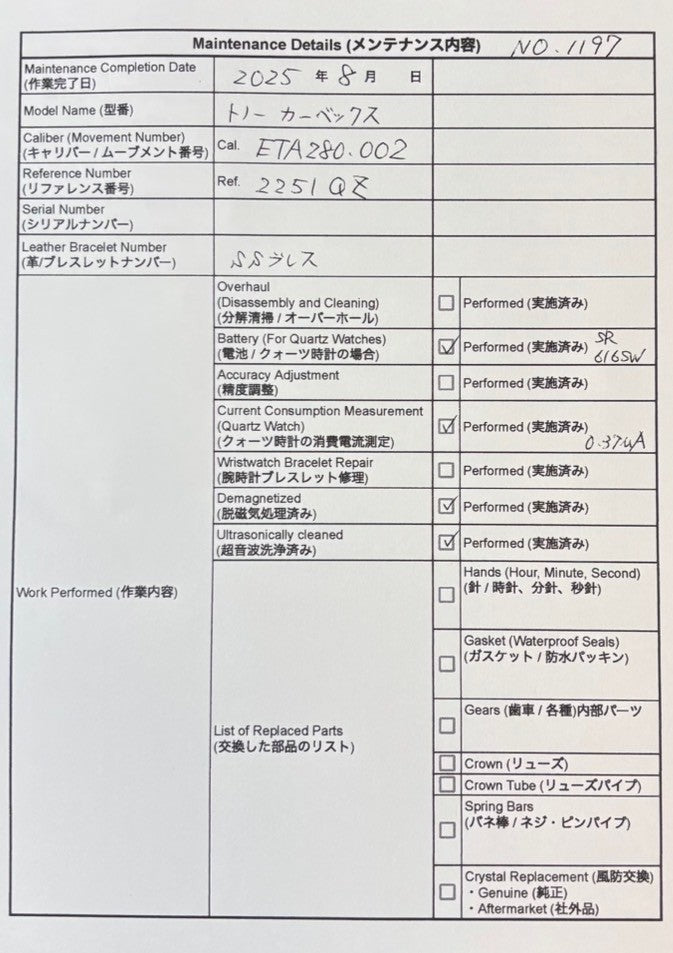 Maintenance Details (メンテナンス内容) NO.1197
Maintenance Completion Date
(作業完了日)
2025 年 8 月 日
Model Name (型番)
トノー カーベックス
Caliber (Movement Number)
(キャリバー / ムーブメント番号)
Cal. ETA280.002
Reference Number
(リファレンス番号)
Ref. 2251 QZ
Serial Number
(シリアルナンバー)
Leather Bracelet Number
(革/ブレスレットナンバー)
SSブレス
Work Performed (作業内容)
Overhaul
(Disassembly and Cleaning)
(分解清掃 / オーバーホール)
Performed (実施済み)
Battery (For Quartz Watches)
(電池 / クォーツ時計の場合)
Performed (実施済み) SR
616SW
Accuracy Adjustment
(精度調整)
Performed (実施済み)
Current Consumption Measurement
(Quartz Watch)
(クォーツ時計の消費電流測定)
Performed (実施済み)
0.37uA
Wristwatch Bracelet Repair
(腕時計ブレスレット修理)
Performed (実施済み)
Demagnetized
(脱磁気処理済み)
Performed (実施済み)
Ultrasonically cleaned
(超音波洗浄済み)
Performed (実施済み)
List of Replaced Parts
(交換した部品のリスト)
Hands (Hour, Minute, Second)
(針 / 時針、分針、秒針)
Gasket (Waterproof Seals)
(ガスケット / 防水パッキン)
Gears (歯車 / 各種)内部パーツ
Crown (リューズ)
Crown Tube (リューズパイプ)
Spring Bars
(バネ棒 / ネジ・ピンパイプ)
Crystal Replacement (風防交換)
・Genuine (純正)
・Aftermarket (社外品)